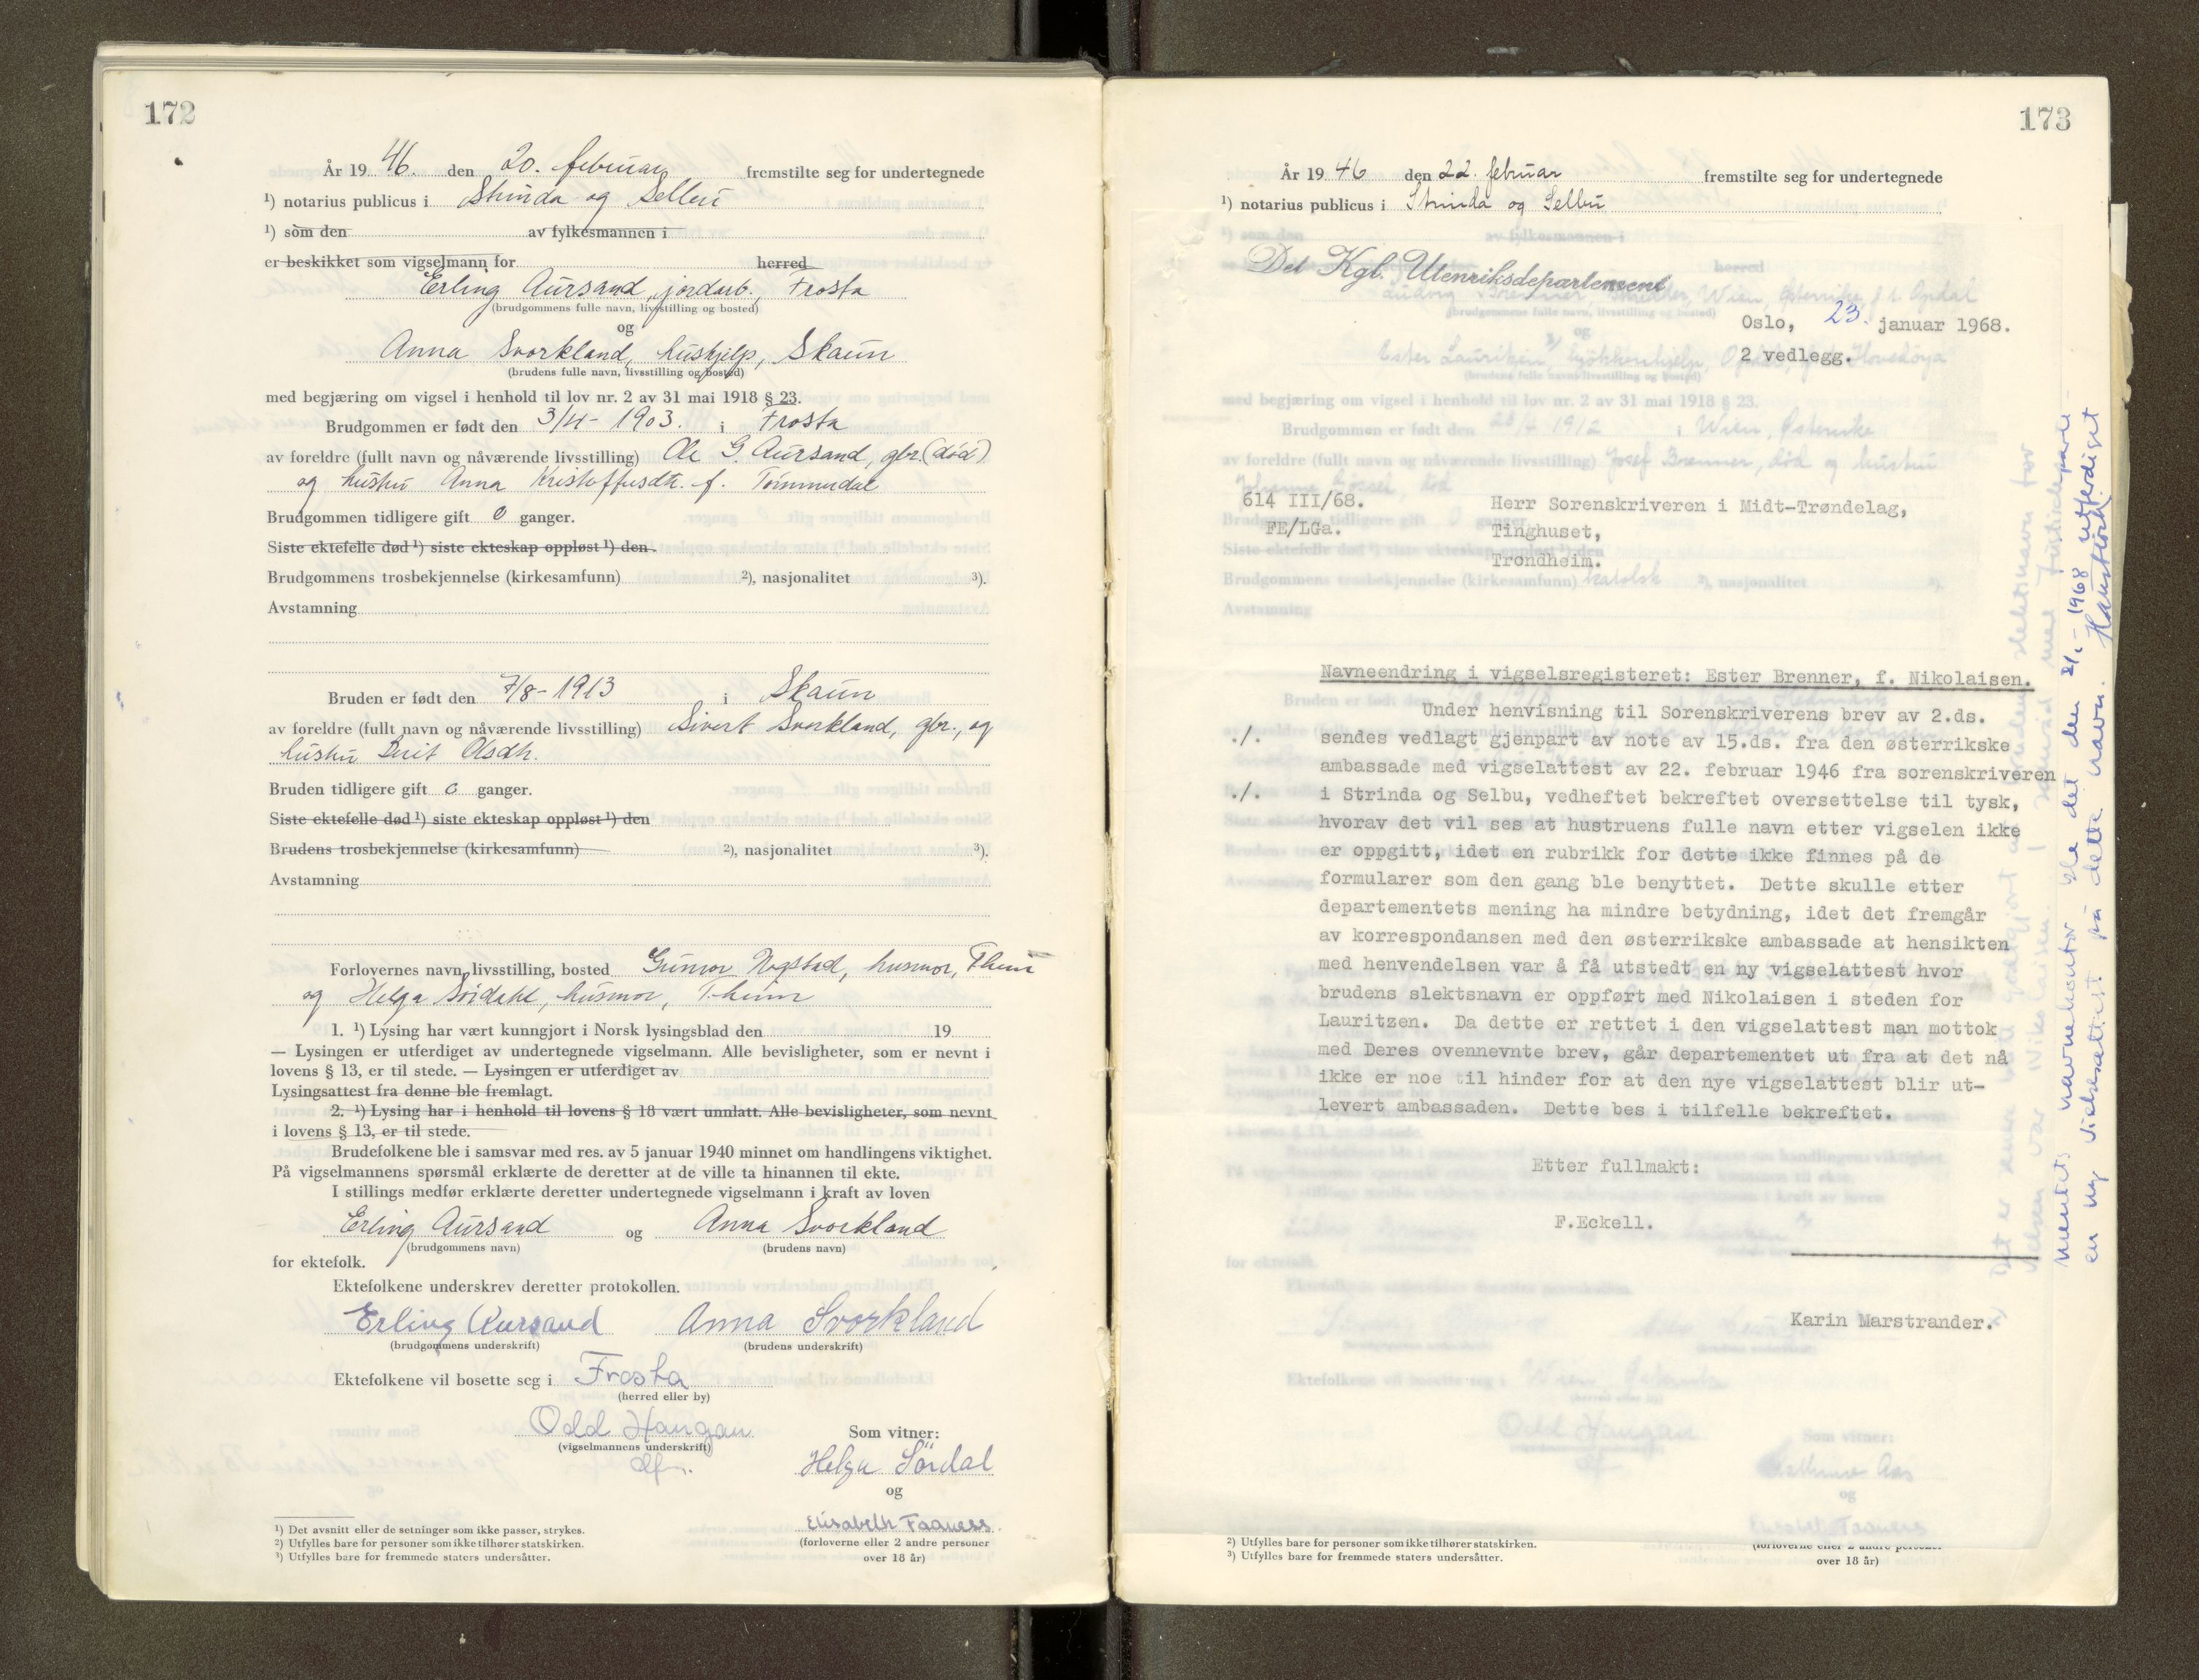 172
År 19 46. den 20. februar fremstilte seg for undertegnede
¹) notarius publicus i Strinda og Selbu
¹) som den av fylkesmannen i
er beskikket som vigselmann for herred
Erling Aursand, jordarb., Frosta
(brudgommens fulle navn, livsstilling og bosted)
og
Anna Svorkland, hushjelp, Skaun
(brudens fulle navn, livsstilling og bosted)
med begjæring om vigsel i henhold til lov nr. 2 av 31 mai 1918 § 23.
Brudgommen er født den 3/4- 1903. i Frosta
av foreldre (fullt navn og nåværende livsstilling) Ole G. Aursand, gbr. (død)
og hustru Anna Kristoffersdtr. f.
Brudgommen tidligere gift 0 ganger.
Siste ektefelle død ¹) siste ekteskap oppløst ¹) den
Brudgommens trosbekjennelse (kirkesamfunn) ²), nasjonalitet ³).
Avstamning
Bruden er født den 7/8- 1913 i Skaun
av foreldre (fullt navn og nåværende livsstilling) Sivert Svorkland, gbr., og
hustru Berit Olsdtr.
Bruden tidligere gift 0 ganger.
Siste ektefelle død ¹) siste ekteskap oppløst ¹) den
Brudens trosbekjennelse (kirkesamfunn) ²), nasjonalitet ³).
Avstamning
Forlovernes navn, livsstilling, bosted Gunvor Nogstad, husmor, Theim
og Helga Sördahl, husmor, T.heim
1. ¹) Lysing har vært kunngjort i Norsk lysingsblad den 19
— Lysingen er utferdiget av undertegnede vigselmann. Alle bevisligheter, som er nevnt i
lovens § 13, er til stede. — Lysingen er utferdiget av
Lysingsattest fra denne ble fremlagt.
2. ¹) Lysing har i henhold til lovens § 18 vært unnlatt. Alle bevisligheter, som nevnt
i lovens § 13, er til stede.
Brudefolkene ble i samsvar med res. av 5 januar 1940 minnet om handlingens viktighet.
På vigselmannens spørsmål erklærte de deretter at de ville ta hinannen til ekte.
I stillings medfør erklærte deretter undertegnede vigselmann i kraft av loven
Erling Aursand og Anna Svorkland
(brudgommens navn) (brudens navn)
for ektefolk.
Ektefolkene underskrev deretter protokollen.
Erling Aursand Anna Svorkland
(brudgommens underskrift) (brudens underskrift)
Ektefolkene vil bosette seg i Frosta
(herred eller by)
Odd Haugan
(vigselmannens underskrift)
df.
Som vitner:
Helga Sördal
og
Elisabeth Faaness
(forloverne eller 2 andre personer
over 18 år)
¹) Det avsnitt eller de setninger som ikke passer, strykes.
²) Utfylles bare for personer som ikke tilhører statskirken.
³) Utfylles bare for fremmede staters undersåtter.
173
År 19 46 den 22. februar fremstilte seg for undertegnede
¹) notarius publicus i Strinda og Selbu
Det Kgl. Utenriksdepartement
Oslo, 23. januar 1968.
2 vedlegg.
614 III/68.
FE/LGa.
Herr Sorenskriveren i Midt-Trøndelag,
Tinghuset,
Trondheim.
Navneendring i vigselsregisteret: Ester Brenner, f. Nikolaisen.
Under henvisning til Sorenskriverens brev av 2.ds.
./. sendes vedlagt gjenpart av note av 15.ds. fra den østerrikske
ambassade med vigselattest av 22. februar 1946 fra sorenskriveren
./. i Strinda og Selbu, vedheftet bekreftet oversettelse til tysk,
hvorav det vil ses at hustruens fulle navn etter vigselen ikke
er oppgitt, idet en rubrikk for dette ikke finnes på de
formularer som den gang ble benyttet. Dette skulle etter
departementets mening ha mindre betydning, idet det fremgår
av korrespondansen med den østerrikske ambassade at hensikten
med henvendelsen var å få utstedt en ny vigselattest hvor
brudens slektsnavn er oppført med Nikolaisen i steden for
Lauritzen. Da dette er rettet i den vigselattest man mottok
med Deres ovennevnte brev, går departementet ut fra at det nå
ikke er noe til hinder for at den nye vigselattest blir ut-
levert ambassaden. Dette bes i tilfelle bekreftet.
Etter fullmakt:
F.Eckell.
Karin Marstrander.
²) Utfylles bare for personer som ikke tilhører statskirken.
³) Utfylles bare for fremmede staters undersåtter.
(forloverne eller 2 andre personer
over 18 år)
mentets navnekontor ble det den 2/1-1968 utferdiget
en ny vielsesattest på dette navn.